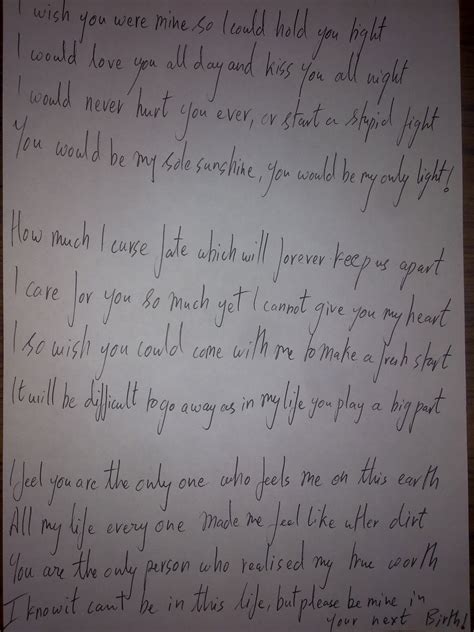 I wish you were mine so I could hold you tight
I would love you all day and kiss you all night
I would never hurt you ever, or start a stupid fight
You would be my sole sunshine, you would be my only light!
How much I curse fate which will forever keep us apart
I care for you so much yet I cannot give you my heart
I so wish you could come with me to make a fresh start
It will be difficult to go away as in my life you play a big part
I feel you are the only one who feels me on this earth
All my life every one made me feel like utter dirt
You are the only person who realised my true worth
I know it can't be in this life, but please be mine in
your next Birth!